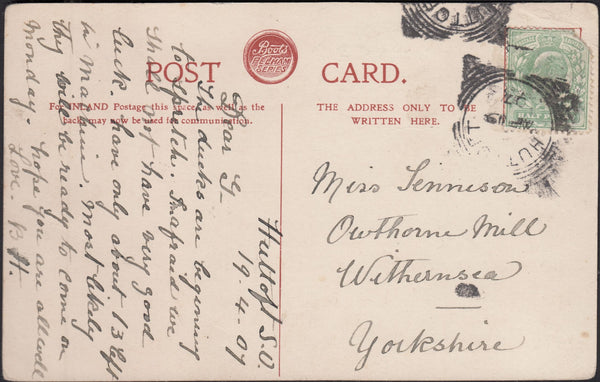 POST CARD.
Boots
PELHAM
SERIES
For INLAND Postage this space, as well as the
back may now be used for communication.
THE ADDRESS ONLY TO BE
WRITTEN HERE.
HALF
HUTTOFT
Huttoft S.O.
19.4.07
Dear G
Ducks are beginning
to spritch. I'm afraid we
shall not have very good
luck. have only about 13 left
in machine. Most likely
they will be ready to come on
Monday. hope you are all well
Love. B H.
Miss Tennison
Owthorne Mill
Withernsea
Yorkshire